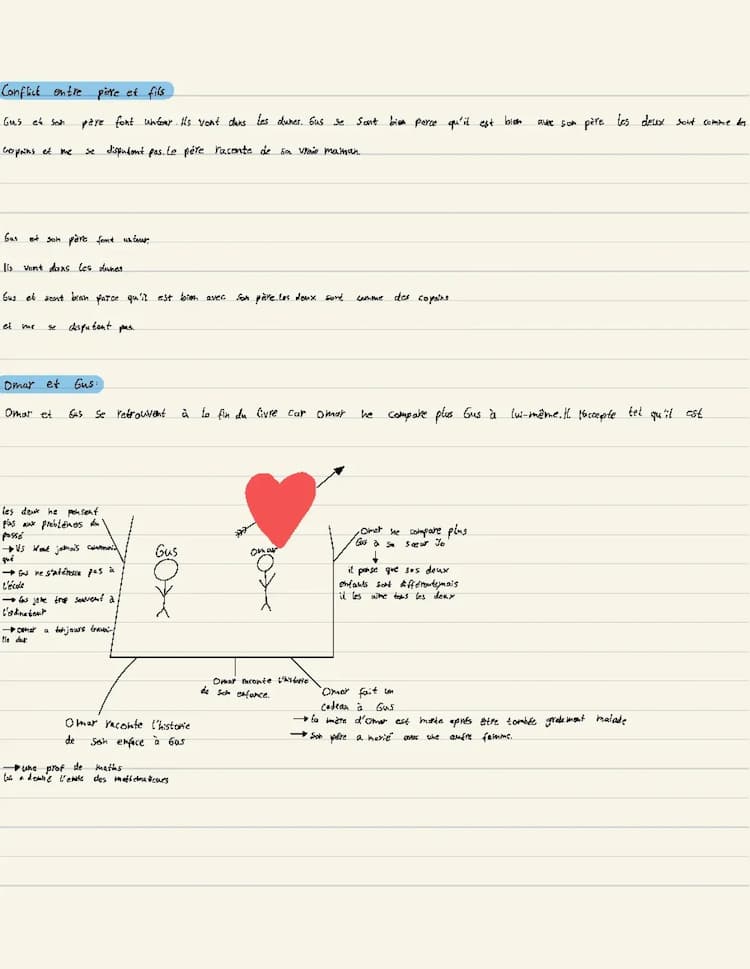 Conflict entre père et fils
Gus et son père font un tour. Ils vont dans les dunes. Gus se sent bien parce qu'il est bien avec son père les deux sont comme des
copains et ne se disputent pas. Le père raconte de sa vraie maman.
Gus et son père font un tour.
Ils vont dans les dunes
Gus et sent bien parce qu'il est bien avec son père. Les deux sont comme des copains
et ne se disputent pas.
Omar et Gus:
Omar et Gus se retrouvent à la fin du livre car Omar ne compare plus Gus à lui-même. Il l'accepte tel qu'il est
les deux ne pensent
plus aux problèmes du
passé
→ Ils n'ont jamais
→ Gus ne s'intéresse pas à
l'école
→ Gus joue trop souvent à
l'ordinateur
→ Omar a toujours travai-
llé dur
Gus
Omar
Omar ne compare plus
Gus à sa sœur Jo
↓
il pense que ses deux
enfants sont différents, mais
il les aime tous les deux
Omar raconte l'histoire
de son enfance.
Omar raconte l'histoire
de son enface à Gus
→ une prof de maths
lui a donné l'envie des mathématiques
Omar fait un
cadeau à Gus
→ la mère d'Omar est morte après être tombée gravement malade
→ Son père a marié avec une autre femme.